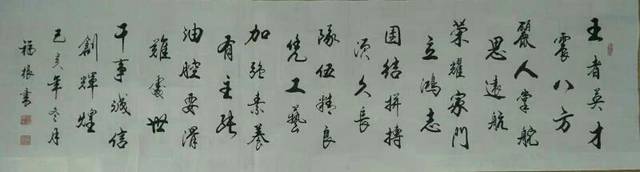 王者英才
震八方
贤人掌舵
思远航
荣耀家门
立鸿志
团结拼搏
须久长
队伍精良
凭工艺
加强素养
有主张
油腔要滑
难处世
干事诚信
创辉煌
己亥年冬月
福根书